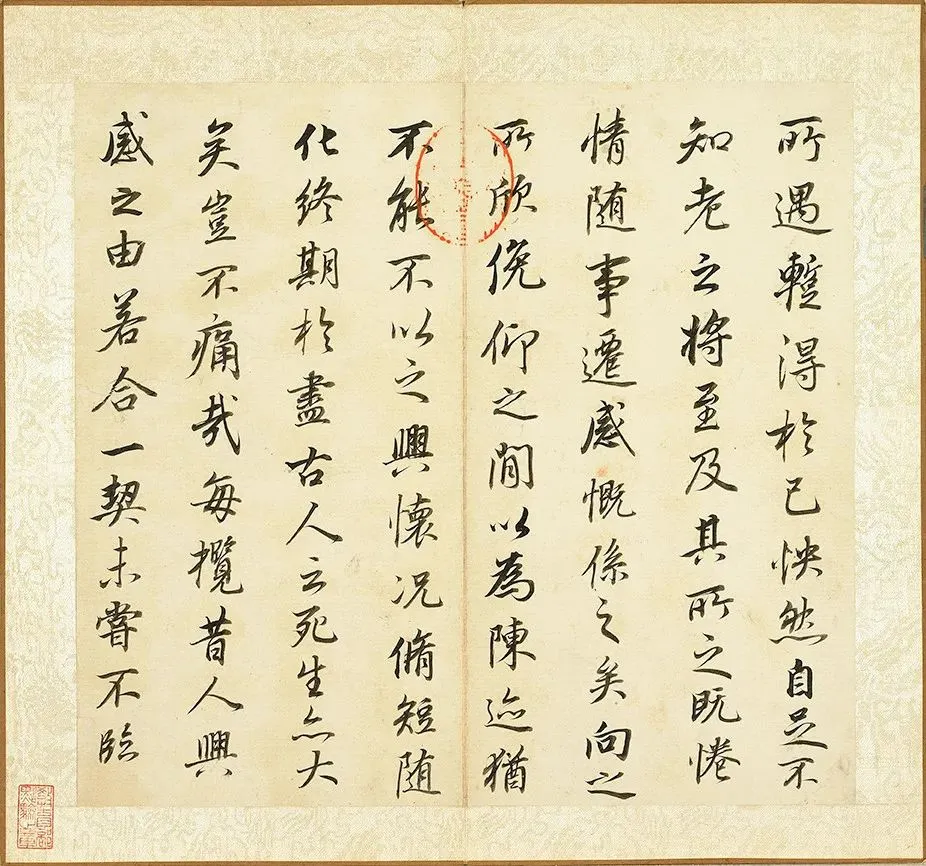 所遇暫得於己怏然自足不
知老之將至及其所之既惓
情随事遷感慨係之矣向之
所欣俛仰之閒以為陳迹猶
不能不以之興懷况脩短随
化終期於盡古人云死生亦大
矣豈不痛哉每攬昔人興
感之由若合一契未嘗不臨